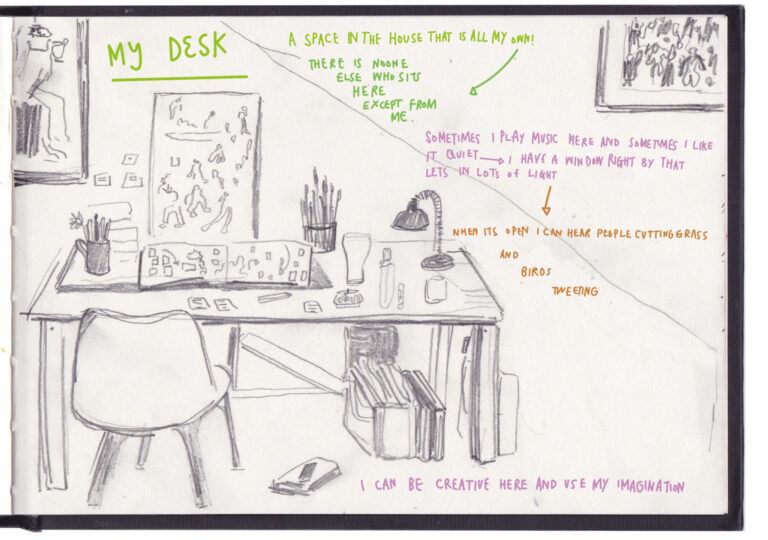 MY DESK
A SPACE IN THE HOUSE THAT IS ALL MY OWN!
THERE IS NOONE
ELSE WHO SITS
HERE
EXCEPT FROM
ME.
SOMETIMES I PLAY MUSIC HERE AND SOMETIMES I LIKE
IT QUIET → I HAVE A WINDOW RIGHT BY THAT
LETS IN LOTS OF LIGHT
WHEN ITS OPEN I CAN HEAR PEOPLE CUTTING GRASS
AND
BIRDS
TWEETING
I CAN BE CREATIVE HERE AND USE MY IMAGINATION